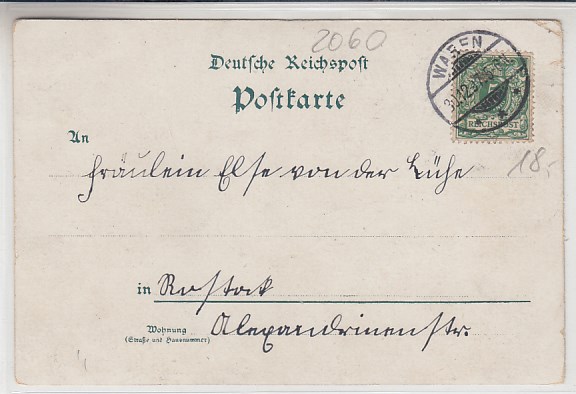 2060
Deutsche Reichspost
Postkarte
WAREN
REICHSPOST
An
Fräulein Else von der Lühe
18.-
in Rostock
Wohnung
(Straße und Hausnummer)
Alexandrinenstr.